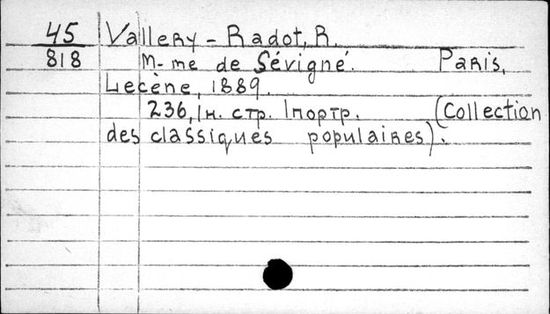 45 Vallery-Radot, R.
818 M-me de Sévigné. Paris,
Lecène, 1889.
236, 1н. стр. 1 портр. (Collection
des classiques populaires).